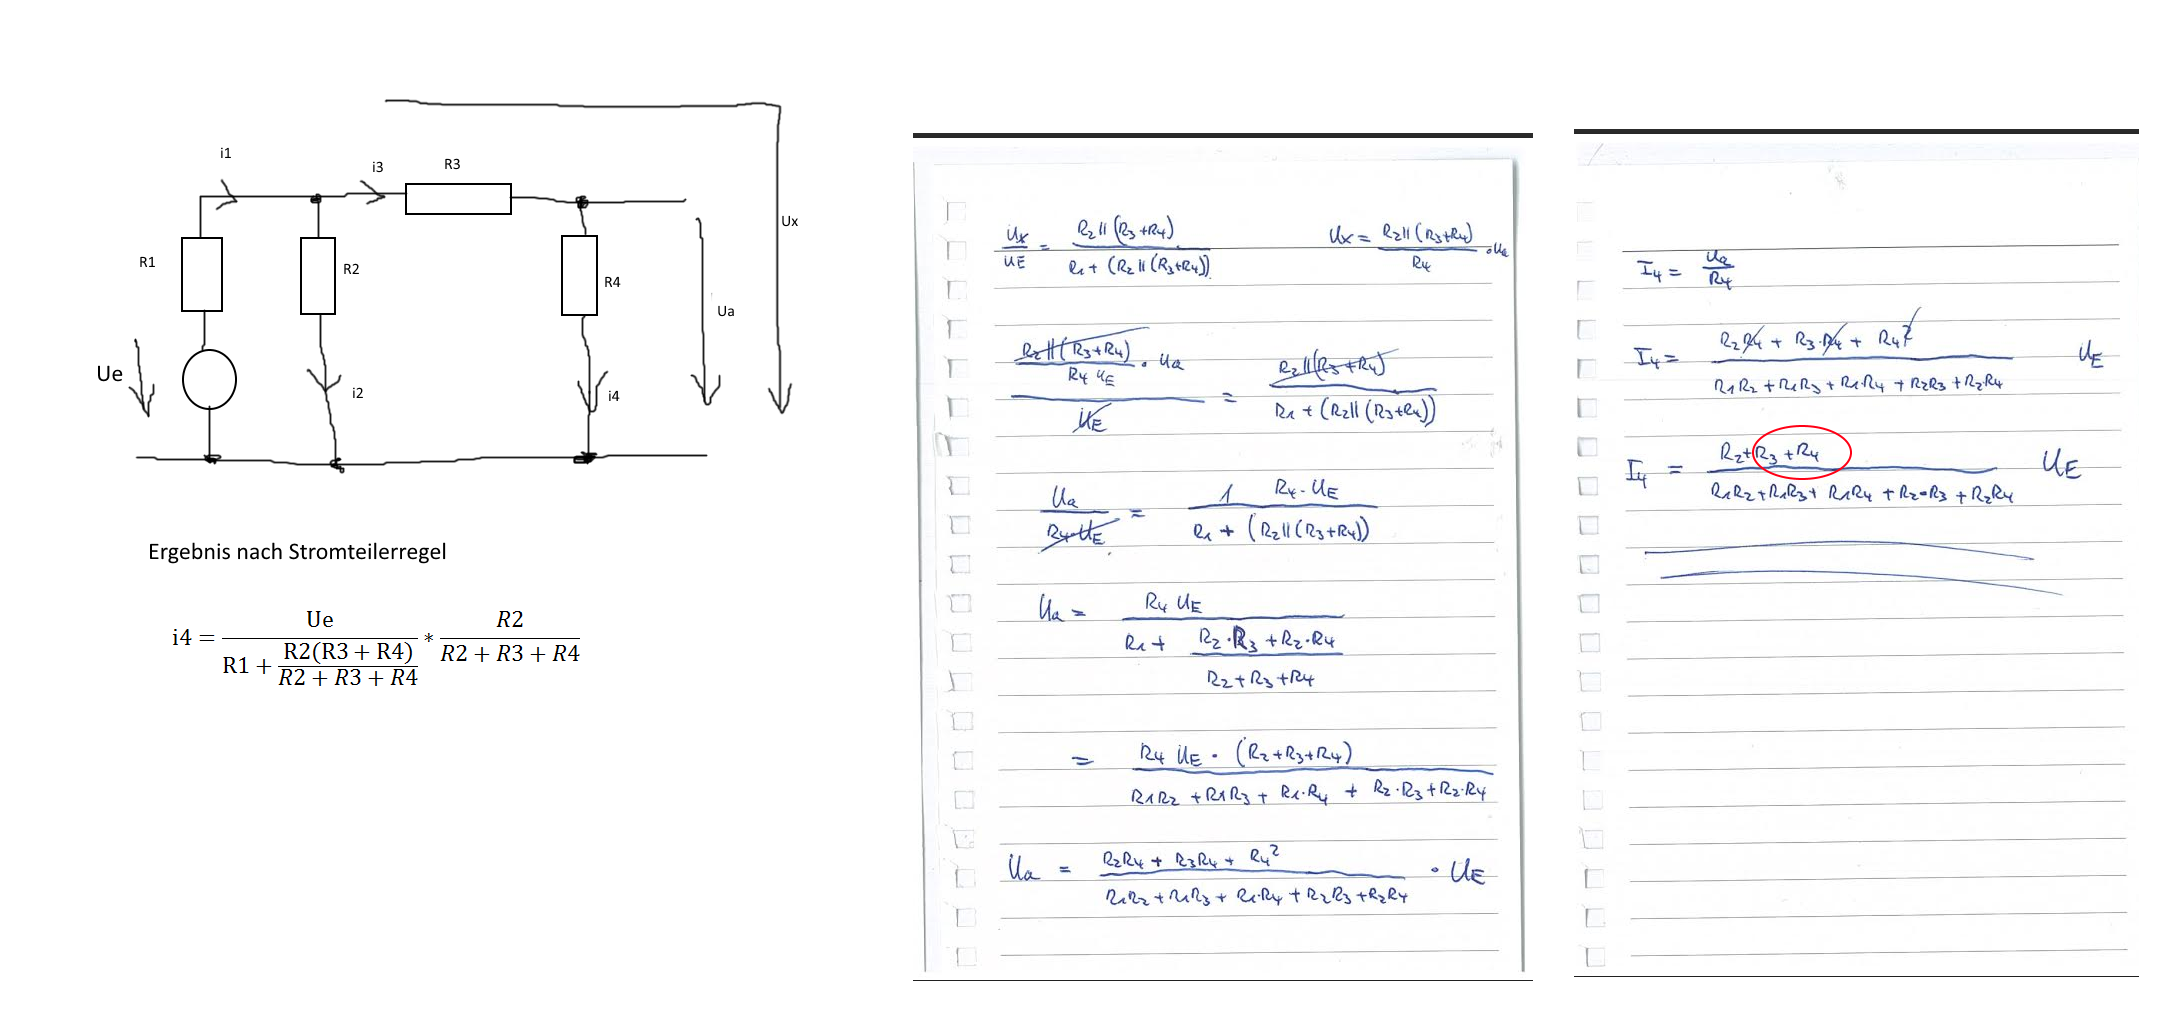 i1
i3
R3
Ux
R1
R2
R4
Ua
Ue
i2
i4
Ergebnis nach Stromteilerregel
i4 = Ue / (R1 + R2(R3 + R4) / (R2 + R3 + R4)) * R2 / (R2 + R3 + R4)
Ux / UE = R2 || (R3+R4) / (R1 + (R2 || (R3+R4)))
Ux = R2 || (R3+R4) / R4 · Ua
(R2 || (R3+R4) / (R4 UE) · Ua) / UE = R2 || (R3+R4) / (R1 + (R2 || (R3+R4)))
Ua / (R4·UE) = 1 R4·UE / (R1 + (R2 || (R3+R4)))
Ua = R4 UE / (R1 + (R2·R3 + R2·R4) / (R2+R3+R4))
= R4 UE · (R2+R3+R4) / (R1R2 + R1R3 + R1·R4 + R2·R3 + R2·R4)
Ua = (R2R4 + R3R4 + R4²) / (R1R2 + R1R3 + R1·R4 + R2R3 + R2R4) · UE
I4 = Ua / R4
I4 = (R2R4 + R3·R4 + R4²) / (R1R2 + R1R3 + R1·R4 + R2R3 + R2·R4) UE
I4 = (R2+R3+R4) / (R1R2 + R1R3 + R1R4 + R2·R3 + R2R4) UE